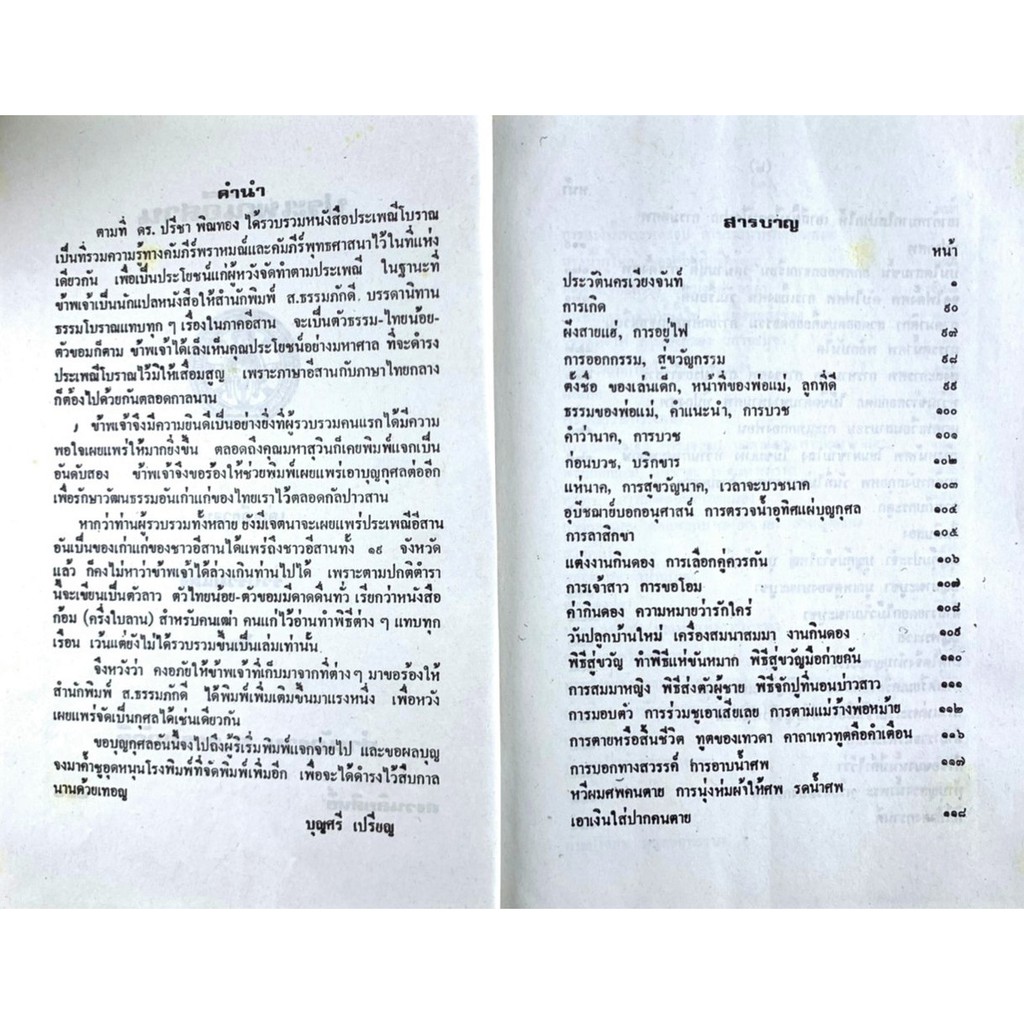 คำนำ
ตามที่ ดร. ปรีชา พิณทอง ได้รวบรวมหนังสือประเพณีโบราณ
เป็นที่รวมความรู้ทางคัมภีร์พราหมณ์และคัมภีร์พุทธศาสนาไว้ในที่แห่ง
เดียวกัน เพื่อเป็นประโยชน์แก่ผู้หวังจัดทำตามประเพณี ในฐานะที่
ข้าพเจ้าเป็นนักแปลหนังสือให้สำนักพิมพ์ ส.ธรรมภักดี. บรรดานิทาน
ธรรมโบราณแทบทุก ๆ เรื่องในภาคอีสาน จะเป็นตัวธรรม-ไทยน้อย-
ตัวขอมก็ตาม ข้าพเจ้าได้เล็งเห็นคุณประโยชน์อย่างมหาศาล ที่จะดำรง
ประเพณีโบราณไว้มิให้เสื่อมสูญ เพราะภาษาอีสานกับภาษาไทยกลาง
ก็ต้องไปด้วยกันตลอดกาลนาน
ข้าพเจ้าจึงมีความยินดีเป็นอย่างยิ่งที่ผู้รวบรวมคนแรกได้มีความ
พอใจเผยแพร่ให้มากยิ่งขึ้น ตลอดถึงคุณมหาสุวนก็เคยพิมพ์แจกเป็น
อันดับสอง ข้าพเจ้าจึงขอร้องให้ช่วยพิมพ์เผยแพร่เอาบุญกุศลต่ออีก
เพื่อรักษาวัฒนธรรมอันเก่าแก่ของไทยเราไว้ตลอดกัลปาวสาน
หากว่าท่านผู้รวบรวมทั้งหลาย ยังมีเจตนาจะเผยแพร่ประเพณีอีสาน
อันเป็นของเก่าแก่ของชาวอีสานได้แพร่ถึงชาวอีสานทั้ง ๑๙ จังหวัด
แล้ว ก็คงไม่หาว่าข้าพเจ้าได้ล่วงเกินท่านไปได้ เพราะตามปกติตำรา
นี้จะเขียนเป็นตัวลาว ตัวไทยน้อย-ตัวขอมมีดาดดื่นทั่ว เรียกว่าหนังสือ
ก้อม (ครึ่งใบลาน) สำหรับคนเฒ่า คนแก่ไว้อ่านทำพิธีต่าง ๆ แทบทุก
เรือน เว้นแต่ยังไม่ได้รวบรวมขึ้นเป็นเล่มเท่านั้น
จึงหวังว่า คงอภัยให้ข้าพเจ้าที่เก็บมาจากที่ต่างๆ มาขอร้องให้
สำนักพิมพ์ ส.ธรรมภักดี ได้พิมพ์เพิ่มเติมขึ้นมาแรงหนึ่ง เพื่อหวัง
เผยแพร่จัดเป็นกุศลได้เช่นเดียวกัน
ขอบุญกุศลอันนี้จงไปถึงผู้ริเริ่มพิมพ์แจกจ่ายไป และขอผลบุญ
จงมาค้ำชูอุดหนุนโรงพิมพ์ที่จัดพิมพ์เพิ่มอีก เพื่อจะได้ดำรงไว้สืบกาล
นานด้วยเทอญ
บุญศรี เปรียญ
สารบาญ
หน้า
ประวัตินครเวียงจันท์ ๑
การเกิด ๙๐
ผึ่งสายแฮ่, การอยู่ไฟ ๙๗
การออกกรรม, สู่ขวัญกรรม ๙๘
ตั้งชื่อ ของเล่นเด็ก, หน้าที่ของพ่อแม่, ลูกที่ดี ๙๙
ธรรมของพ่อแม่, คำแนะนำ, การบวช ๑๐๐
คำว่านาค, การบวช ๑๐๑
ก่อนบวช, บริกขาร ๑๐๒
แห่นาค, การสู่ขวัญนาค, เวลาจะบวชนาค ๑๐๓
อุปัชฌาย์บอกอนุศาสน์ การตรวจน้ำอุทิศแผ่บุญกุศล ๑๐๔
การลาสิกขา ๑๐๕
แต่งงานกินดอง การเลือกคู่ควรกัน ๑๐๖
การเจ้าสาว การขอโอม ๑๐๗
ค่ากินดอง ความหมายว่ารักใคร่ ๑๐๘
วันปลูกบ้านใหม่ เครื่องสมนาสมมา งานกินดอง ๑๐๙
พิธีสู่ขวัญ ทำพิธีแห่ขันหมาก พิธีสู่ขวัญมือก่ายคัน ๑๑๐
การสมมาหญิง พิธีส่งตัวผู้ชาย พิธีจักปูที่นอนบ่าวสาว ๑๑๑
การมอบตัว การร่วมชูเอาเสียเลย การตามแม่ร้างพ่อหม้าย ๑๑๒
การตายหรือสิ้นชีวิต ทูตของเทวดา คาถาเทวทูตคือคำเตือน ๑๑๖
การบอกทางสวรรค์ การอาบน้ำศพ ๑๑๗
หวีผมศพคนตาย การนุ่งห่มผ้าให้ศพ รดน้ำศพ
เอาเงินใส่ปากคนตาย ๑๑๘